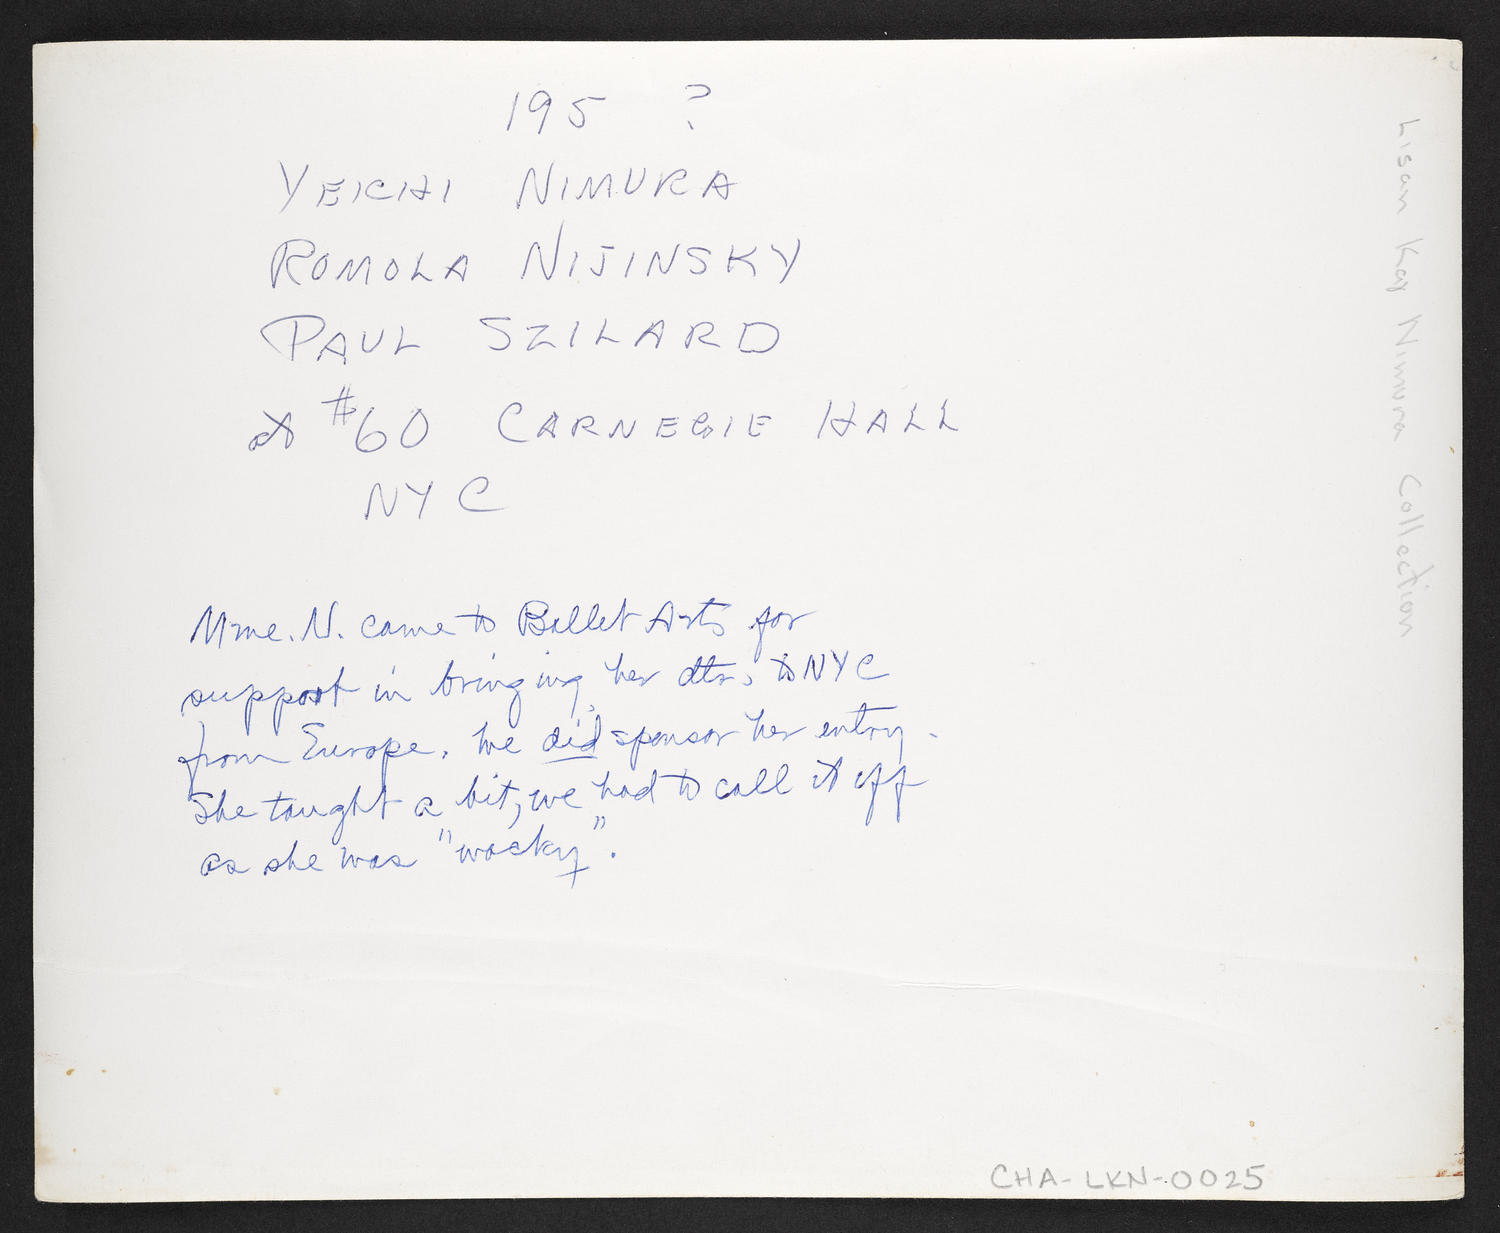 195 ?
YEICHI NIMURA
ROMOLA NIJINSKY
PAUL SZILARD
at #60 CARNEGIE HALL
NYC
Mme. N. came to Ballet Arts for
support in bringing her dtr. to NYC
from Europe. We did sponsor her entry.
She taught a bit, we had to call it off
as she was "wacky".
Lisan Kay Nimura Collection
CHA-LKN-0025